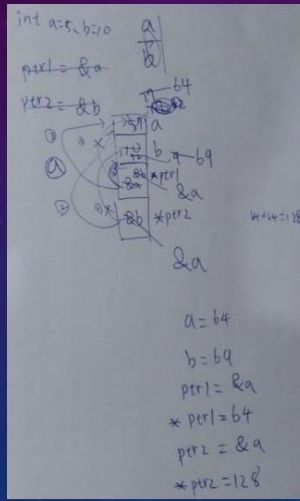 int a=5, b=10
a
b
ptr1 = &a
ptr2 = &b
64
a
b
69
&b *ptr1
&a
&a
&b *ptr2
&a
64+64=128
a=64
b=69
ptr1=&a
*ptr1=64
ptr2=&a
*ptr2=128